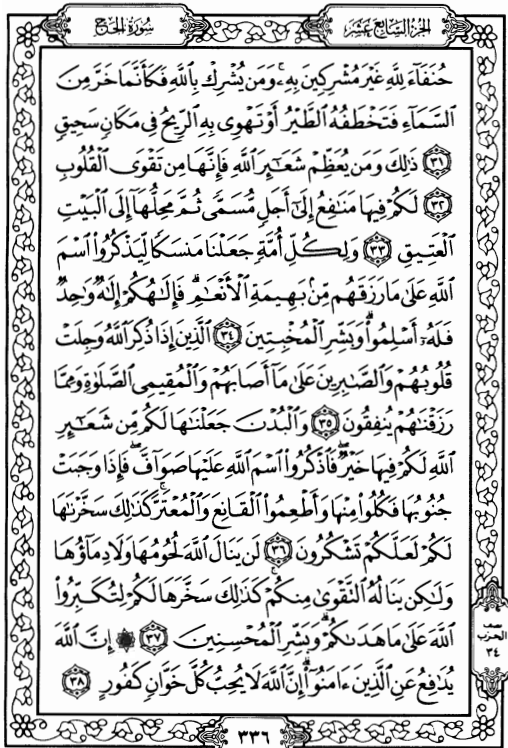 سُورَةُ الحَجِّ
الجُزْءُ السَّابِعَ عَشَرَ
حُنَفَآءَ لِلَّهِ غَيْرَ مُشْرِكِينَ بِهِۦۚ وَمَن يُشْرِكْ بِٱللَّهِ فَكَأَنَّمَا خَرَّ مِنَ
ٱلسَّمَآءِ فَتَخْطَفُهُ ٱلطَّيْرُ أَوْ تَهْوِى بِهِ ٱلرِّيحُ فِى مَكَانٍ سَحِيقٍ
٣١ ذَٰلِكَ وَمَن يُعَظِّمْ شَعَٰٓئِرَ ٱللَّهِ فَإِنَّهَا مِن تَقْوَى ٱلْقُلُوبِ
٣٢ لَكُمْ فِيهَا مَنَٰفِعُ إِلَىٰٓ أَجَلٍ مُّسَمًّى ثُمَّ مَحِلُّهَآ إِلَى ٱلْبَيْتِ
ٱلْعَتِيقِ ٣٣ وَلِكُلِّ أُمَّةٍ جَعَلْنَا مَنسَكًا لِّيَذْكُرُوا۟ ٱسْمَ
ٱللَّهِ عَلَىٰ مَا رَزَقَهُم مِّنۢ بَهِيمَةِ ٱلْأَنْعَٰمِۗ فَإِلَٰهُكُمْ إِلَٰهٌ وَٰحِدٌ
فَلَهُۥٓ أَسْلِمُوا۟ۗ وَبَشِّرِ ٱلْمُخْبِتِينَ ٣٤ ٱلَّذِينَ إِذَا ذُكِرَ ٱللَّهُ وَجِلَتْ
قُلُوبُهُمْ وَٱلصَّٰبِرِينَ عَلَىٰ مَآ أَصَابَهُمْ وَٱلْمُقِيمِى ٱلصَّلَوٰةِ وَمِمَّا
رَزَقْنَٰهُمْ يُنفِقُونَ ٣٥ وَٱلْبُدْنَ جَعَلْنَٰهَا لَكُم مِّن شَعَٰٓئِرِ
ٱللَّهِ لَكُمْ فِيهَا خَيْرٌۖ فَٱذْكُرُوا۟ ٱسْمَ ٱللَّهِ عَلَيْهَا صَوَآفَّۖ فَإِذَا وَجَبَتْ
جُنُوبُهَا فَكُلُوا۟ مِنْهَا وَأَطْعِمُوا۟ ٱلْقَانِعَ وَٱلْمُعْتَرَّۚ كَذَٰلِكَ سَخَّرْنَٰهَا
لَكُمْ لَعَلَّكُمْ تَشْكُرُونَ ٣٦ لَن يَنَالَ ٱللَّهَ لُحُومُهَا وَلَا دِمَآؤُهَا
وَلَٰكِن يَنَالُهُ ٱلتَّقْوَىٰ مِنكُمْۚ كَذَٰلِكَ سَخَّرَهَا لَكُمْ لِتُكَبِّرُوا۟
ٱللَّهَ عَلَىٰ مَا هَدَىٰكُمْۗ وَبَشِّرِ ٱلْمُحْسِنِينَ ٣٧ ۞ إِنَّ ٱللَّهَ
يُدَٰفِعُ عَنِ ٱلَّذِينَ ءَامَنُوٓا۟ۗ إِنَّ ٱللَّهَ لَا يُحِبُّ كُلَّ خَوَّانٍ كَفُورٍ ٣٨
نصف
الحزب
٣٤
٣٣٦